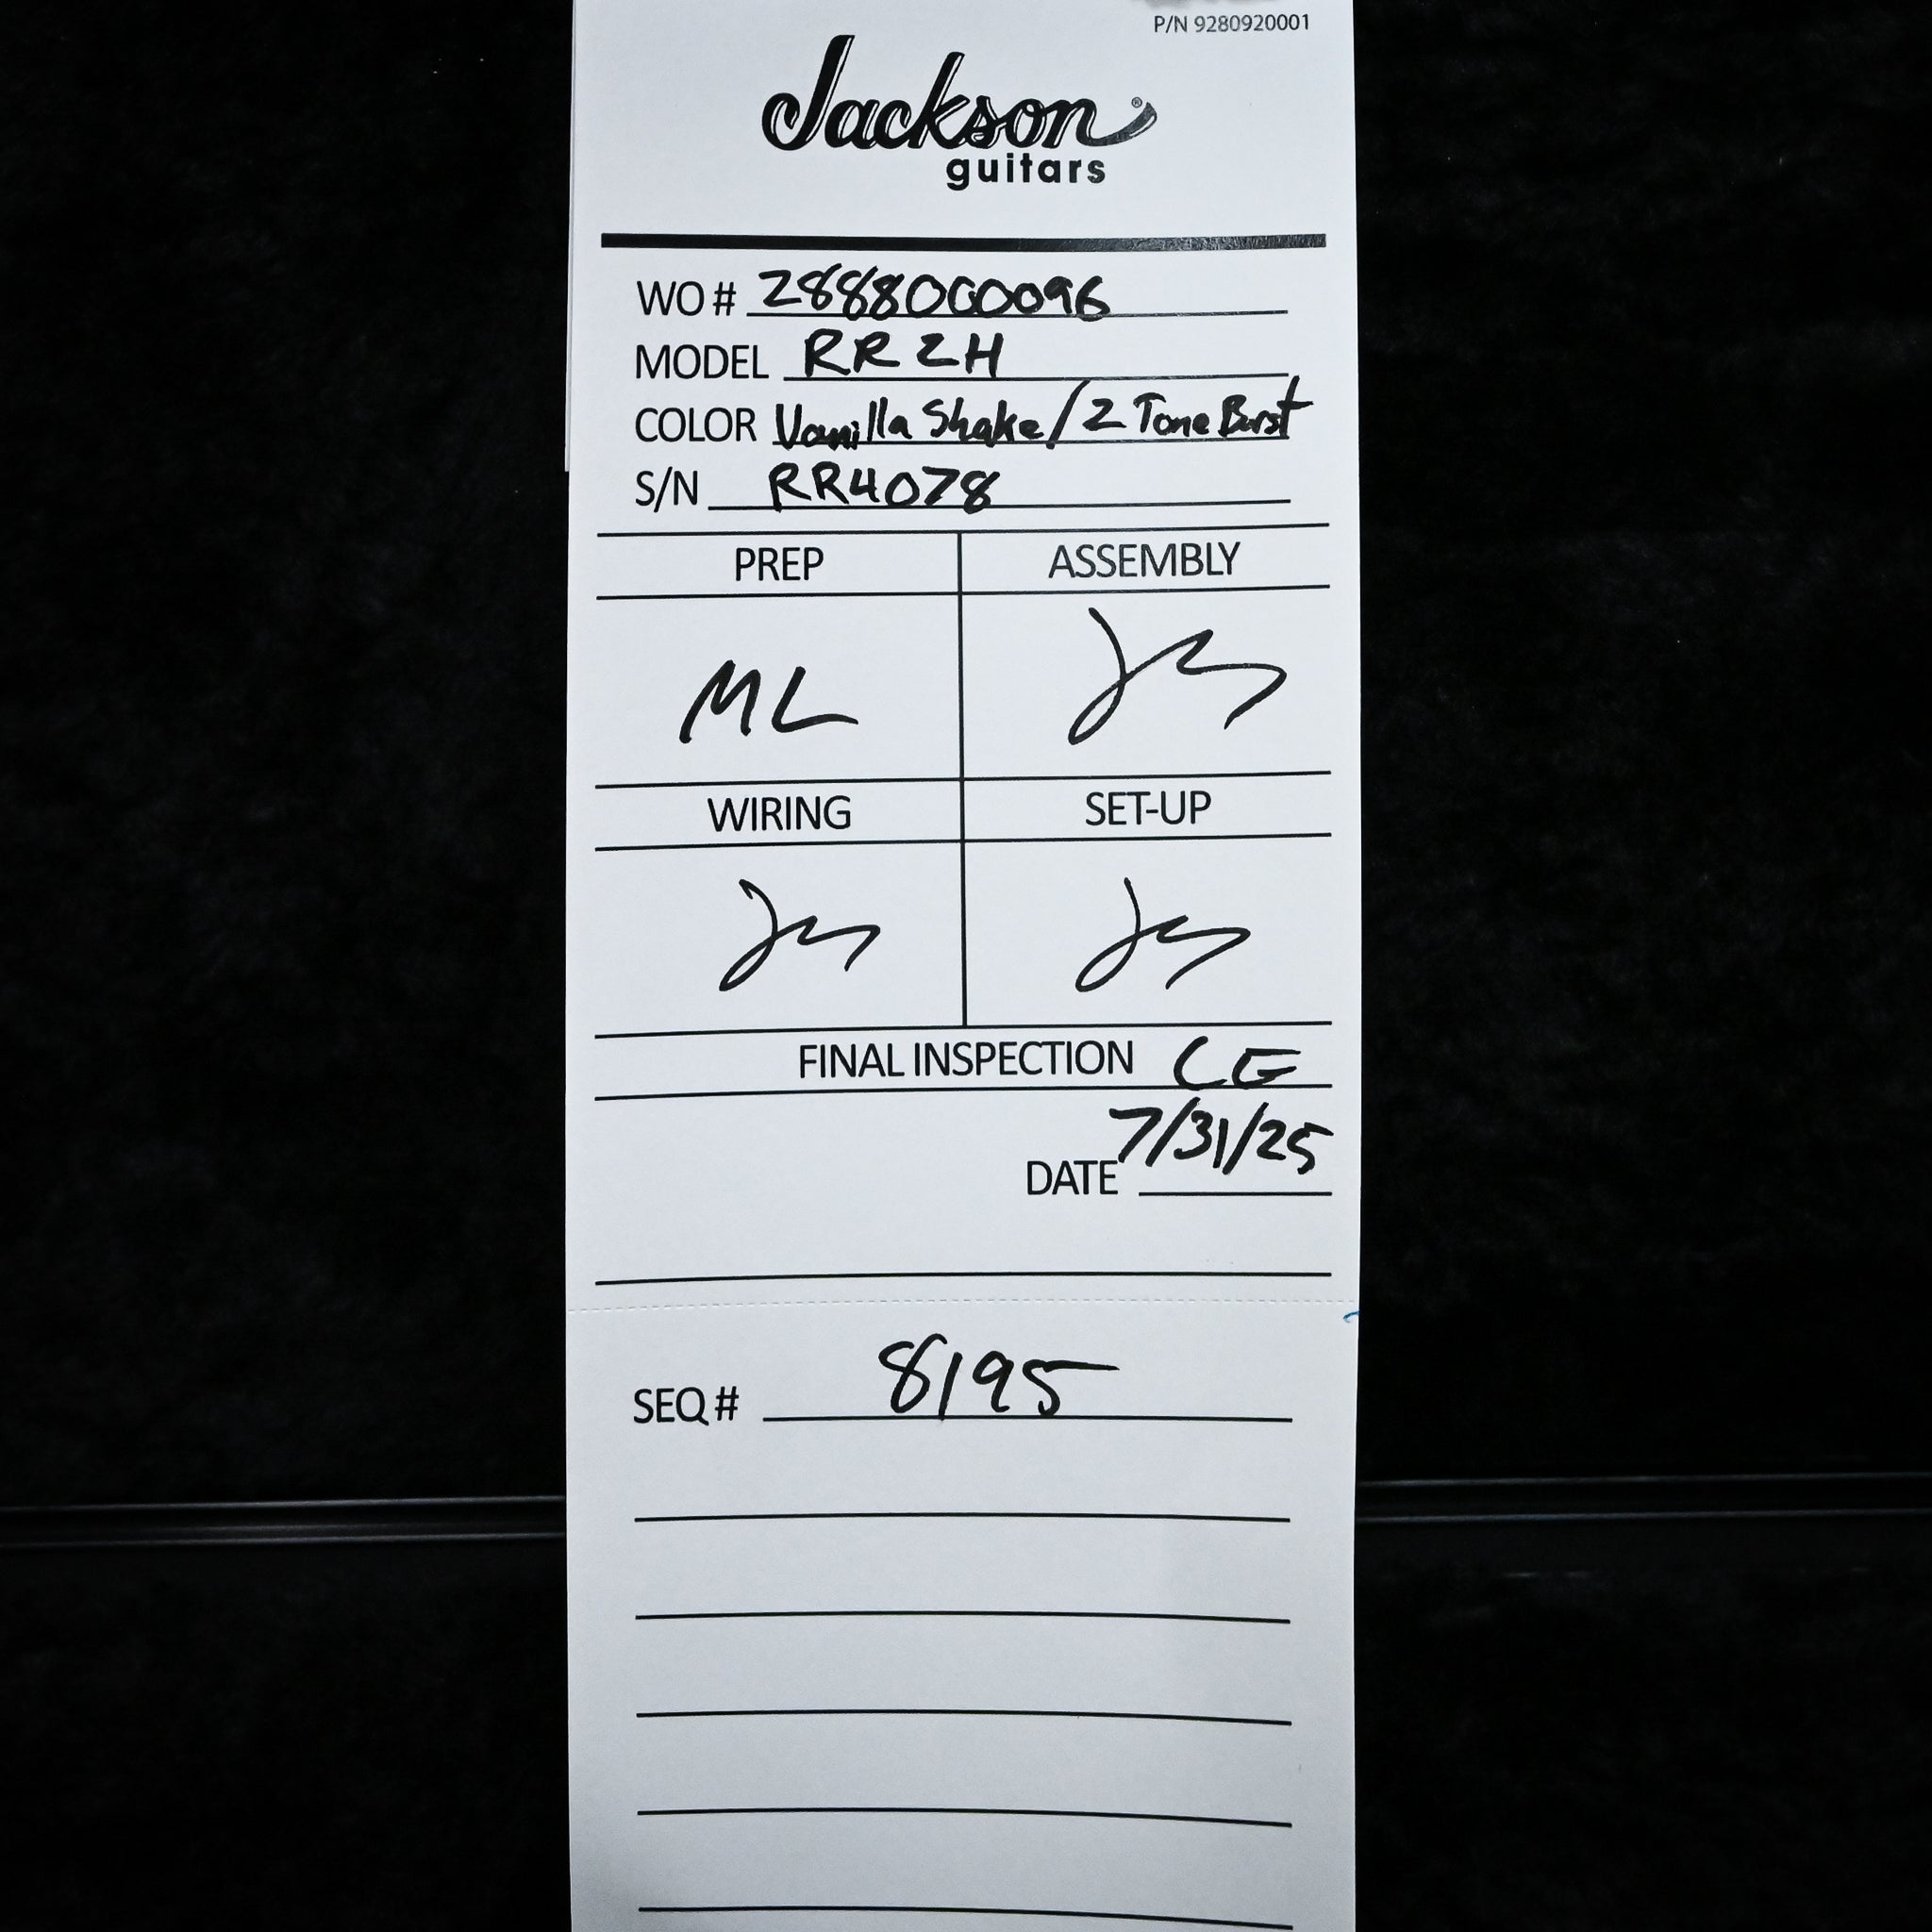 P/N 9280920001
Jackson®
guitars
WO# 2888000096
MODEL RR2H
COLOR Vanilla Shake/2 Tone Burst
S/N RR4078
PREP ASSEMBLY
ML
WIRING SET-UP
FINAL INSPECTION CG
DATE 7/31/25
SEQ# 8195